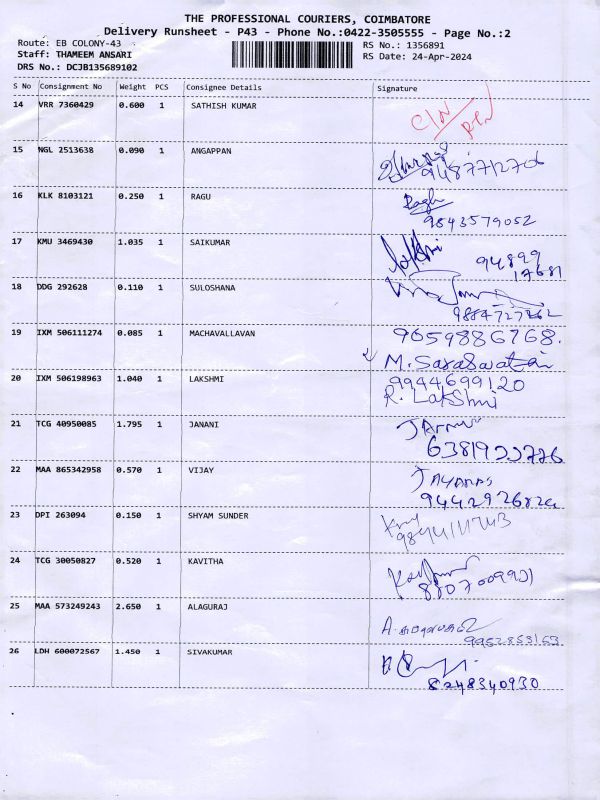 THE PROFESSIONAL COURIERS, COIMBATORE
Delivery Runsheet - P43 - Phone No.:0422-3505555 - Page No.:2
Route: EB COLONY-43 RS No.: 1356891
Staff: THAMEEM ANSARI RS Date: 24-Apr-2024
DRS No.: DCJB135689102
S No Consignment No Weight PCS Consignee Details Signature
14 VRR 7360429 0.600 1 SATHISH KUMAR
C/N
15 NGL 2513638 0.090 1 ANGAPPAN
9487712706
16 KLK 8103121 0.250 1 RAGU
Raghu
9843579052
17 KMU 3469430 1.035 1 SAIKUMAR
94899
17681
18 DDG 292628 0.110 1 SULOSHANA
9884727262
19 IXM 506111274 0.085 1 MACHAVALLAVAN
9659886768.
M. Sarasavathi
20 IXM 506198963 1.040 1 LAKSHMI
9944699120
R. Lakshmi
21 TCG 40950085 1.795 1 JANANI
22 MAA 865342958 0.570 1 VIJAY
23 DPI 263094 0.150 1 SHYAM SUNDER
24 TCG 30050827 0.520 1 KAVITHA
8807009921
25 MAA 573249243 2.650 1 ALAGURAJ
9952853153
26 LDH 600072567 1.450 1 SIVAKUMAR
8248340930